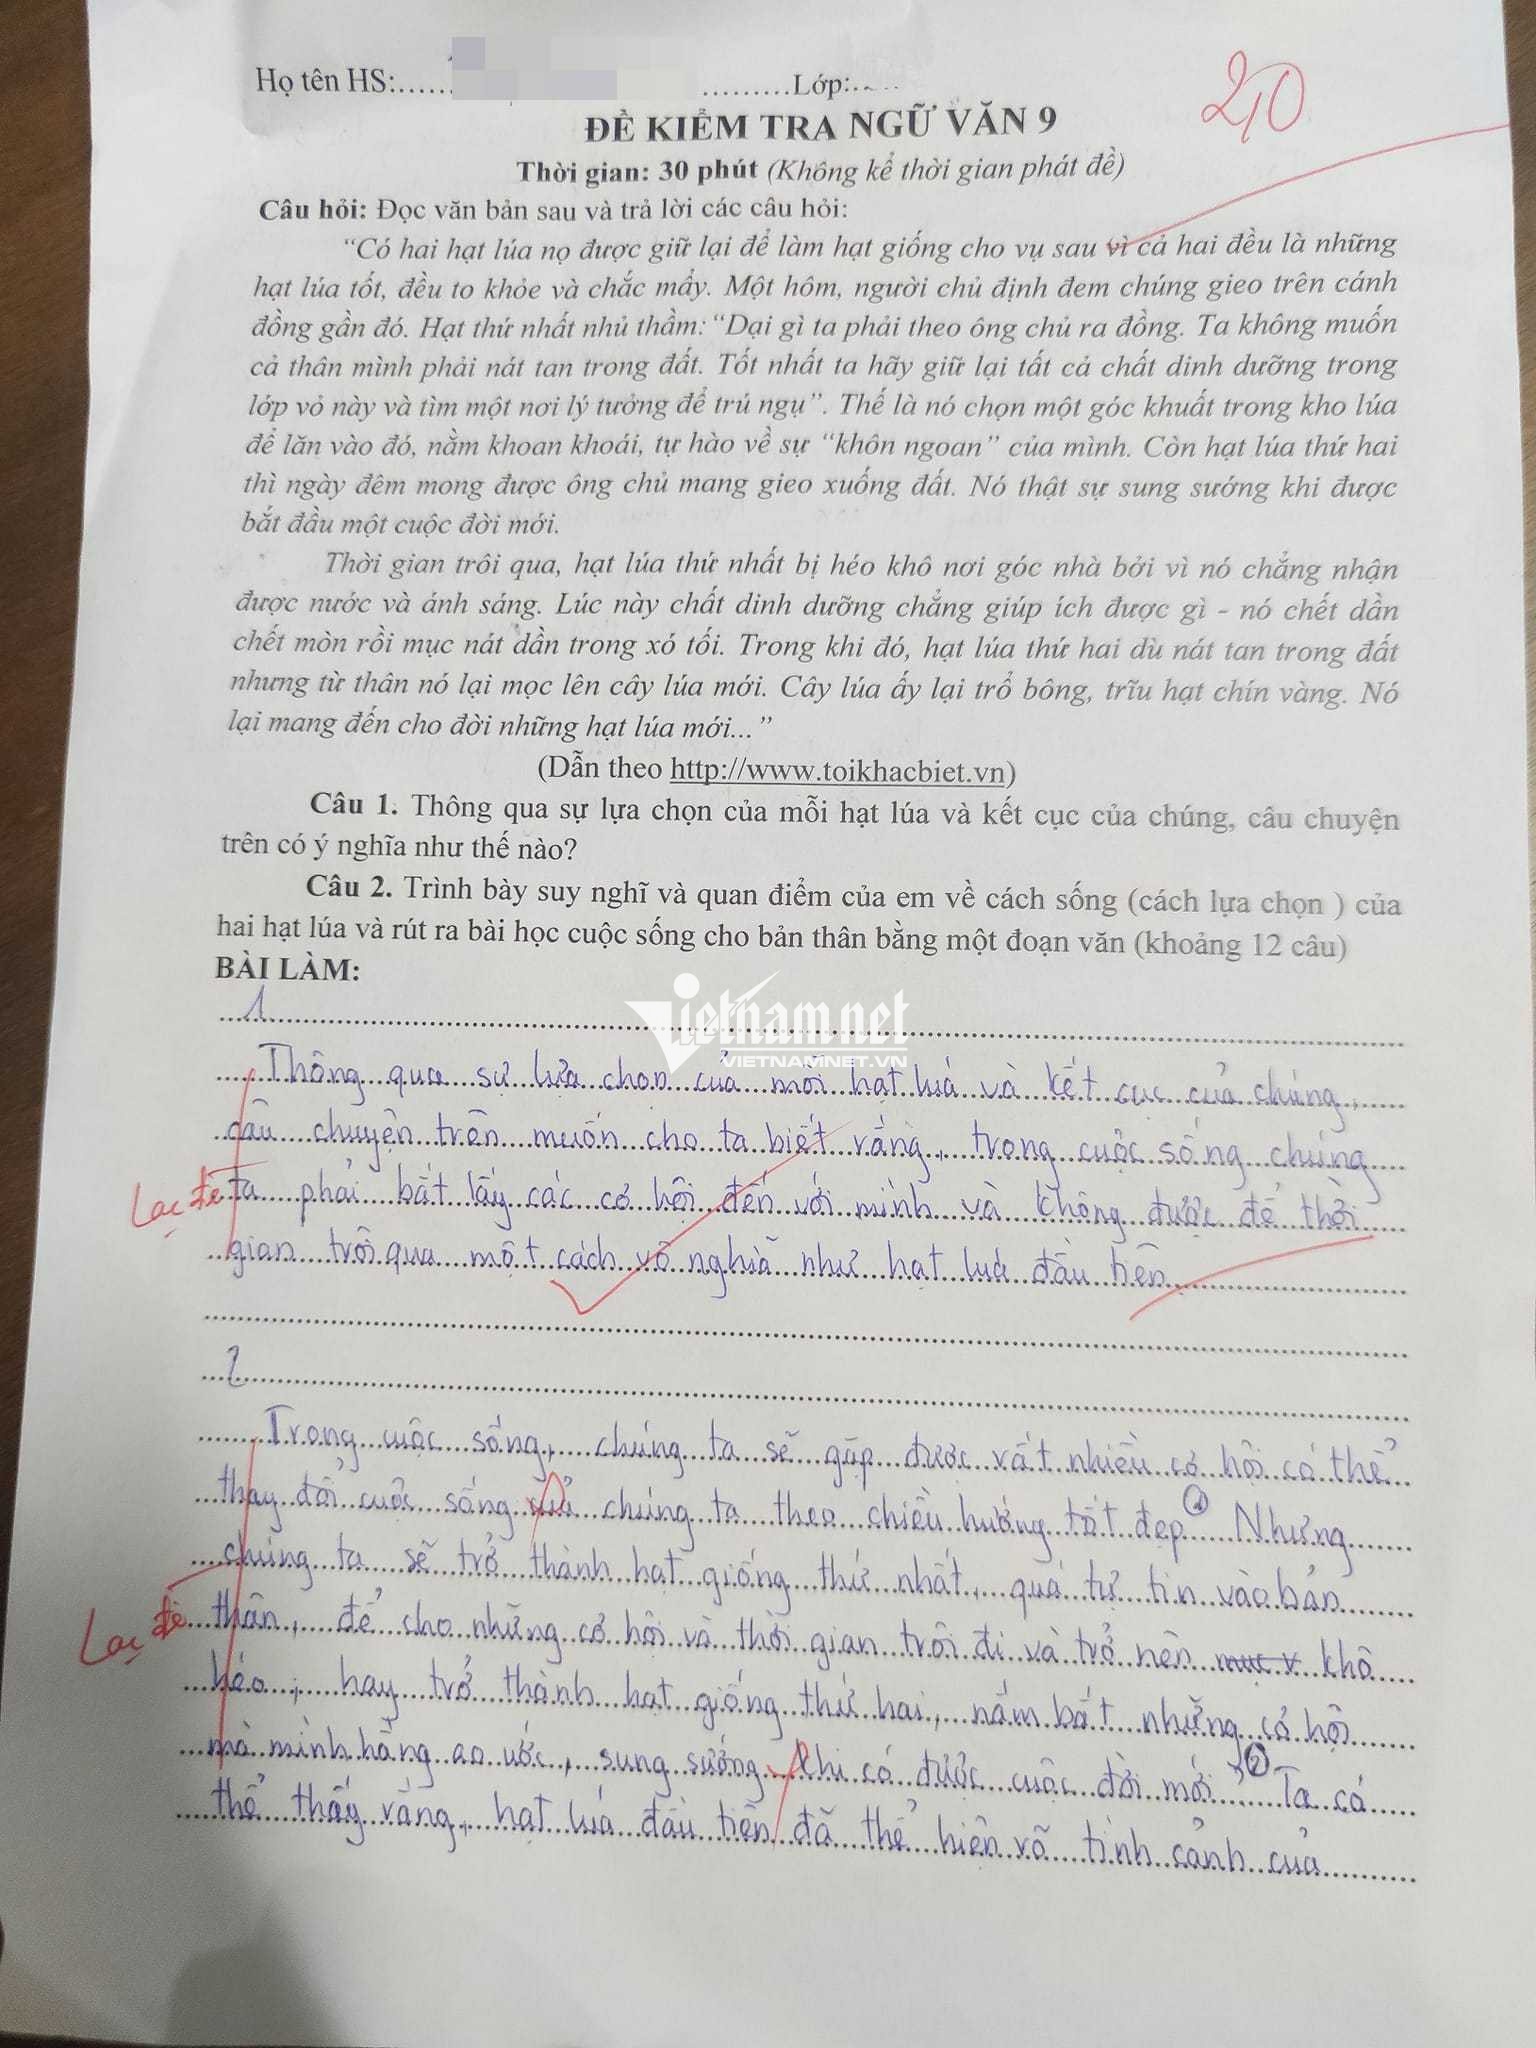 Họ tên HS:...... .........Lớp:....
2,0
ĐỀ KIỂM TRA NGỮ VĂN 9
Thời gian: 30 phút (Không kể thời gian phát đề)
Câu hỏi: Đọc văn bản sau và trả lời các câu hỏi:
“Có hai hạt lúa nọ được giữ lại để làm hạt giống cho vụ sau vì cả hai đều là những
hạt lúa tốt, đều to khỏe và chắc mẩy. Một hôm, người chủ định đem chúng gieo trên cánh
đồng gần đó. Hạt thứ nhất nhủ thầm: “Dại gì ta phải theo ông chủ ra đồng. Ta không muốn
cả thân mình phải nát tan trong đất. Tốt nhất ta hãy giữ lại tất cả chất dinh dưỡng trong
lớp vỏ này và tìm một nơi lý tưởng để trú ngụ”. Thế là nó chọn một góc khuất trong kho lúa
để lăn vào đó, nằm khoan khoái, tự hào về sự “khôn ngoan” của mình. Còn hạt lúa thứ hai
thì ngày đêm mong được ông chủ mang gieo xuống đất. Nó thật sự sung sướng khi được
bắt đầu một cuộc đời mới.
Thời gian trôi qua, hạt lúa thứ nhất bị héo khô nơi góc nhà bởi vì nó chẳng nhận
được nước và ánh sáng. Lúc này chất dinh dưỡng chẳng giúp ích được gì - nó chết dần
chết mòn rồi mục nát dần trong xó tối. Trong khi đó, hạt lúa thứ hai dù nát tan trong đất
nhưng từ thân nó lại mọc lên cây lúa mới. Cây lúa ấy lại trổ bông, trĩu hạt chín vàng. Nó
lại mang đến cho đời những hạt lúa mới...”
(Dẫn theo http://www.toikhacbiet.vn)
Câu 1. Thông qua sự lựa chọn của mỗi hạt lúa và kết cục của chúng, câu chuyện
trên có ý nghĩa như thế nào?
Câu 2. Trình bày suy nghĩ và quan điểm của em về cách sống (cách lựa chọn ) của
hai hạt lúa và rút ra bài học cuộc sống cho bản thân bằng một đoạn văn (khoảng 12 câu)
BÀI LÀM:
1
Vietnam.net
VIETNAMNET.VN
Thông qua sự lựa chọn của mỗi hạt luá và kết cục của chúng,
câu chuyện trên muốn cho ta biết rằng, trong cuộc sống chúng
Lạc đề ta phải bắt lấy các cơ hội đến với mình và không được để thời
gian trôi qua một cách vô nghĩa như hạt luá đầu tiên
2
Trong cuộc sống, chúng ta sẽ gặp được rất nhiều cơ hội có thể
thay đổi cuộc sống của chúng ta theo chiều hướng tốt đẹp (1) Nhưng
chúng ta sẽ trở thành hạt giống thứ nhất, quá tự tin vào bản
Lạc đề thân, để cho những cơ hội và thời gian trôi đi và trở nên khô
héo, hay trở thành hạt giống thứ hai, nắm bắt những cơ hội
mà mình hằng ao ước, sung sướng khi có được cuộc đời mới (2) Ta có
thể thấy rằng, hạt luá đầu tiên đã thể hiện rõ tình cảnh của